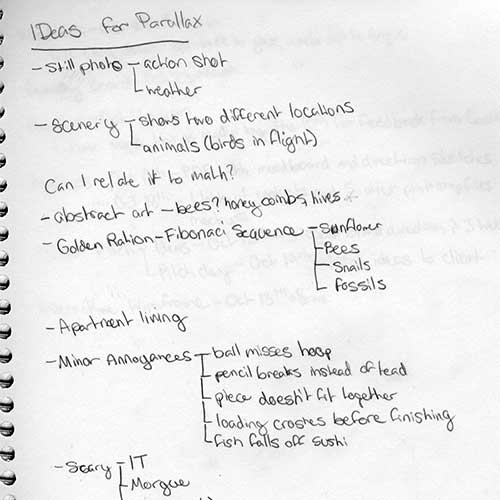 IDeas for Parallax
- still photo - action shot
- weather
- Scenery - shows two different locations
- animals (birds in flight)
Can I relate it to math?
- abstract art - bees? honey combs, hives
- Golden Ration - Fibonaci Sequence - Sunflower
- Bees
- Snails
- Fossils
- Apartment living
- Minor Annoyances - ball misses hoop
- pencil breaks instead of lead
- piece doesn't fit together
- loading crashes before finishing
- fish falls off sushi
- Scary - IT
- Morgue